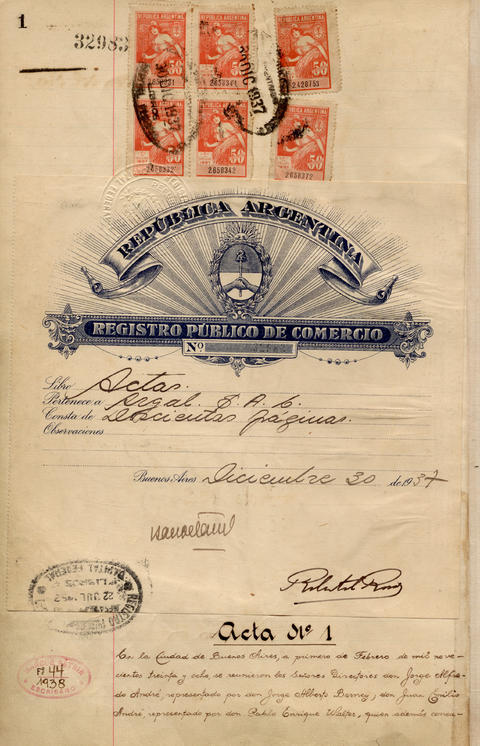 1
32983
REPUBLICA ARGENTINA
50
2658341
REPUBLICA ARGENTINA
50
2428753
50
2658332
50
2658342
50
2658372
30 DIC 1937
REPÚBLICA ARGENTINA
REGISTRO PÚBLICO DE COMERCIO
Nº
Libro Actas.
Pertenece a Regal S. A. C.
Consta de Doscientas páginas.
Observaciones
Buenos Aires Diciembre 30 de 1937
REGISTRO PUBLICO
22 JUL 1952
LIBROS
CAPITAL FEDERAL
Acta Nº 1
En la Ciudad de Buenos Aires, a primero de Febrero de mil nove-
cientos treinta y ocho, se reunieron los Señores Directores don Jorge Alfre-
do André, representado por don Jorge Alberto Berney, don Juan Emilio
André, representado por don Pablo Enrique Walter, quien además conou-
Fº 44
1938
ESCRIBANO